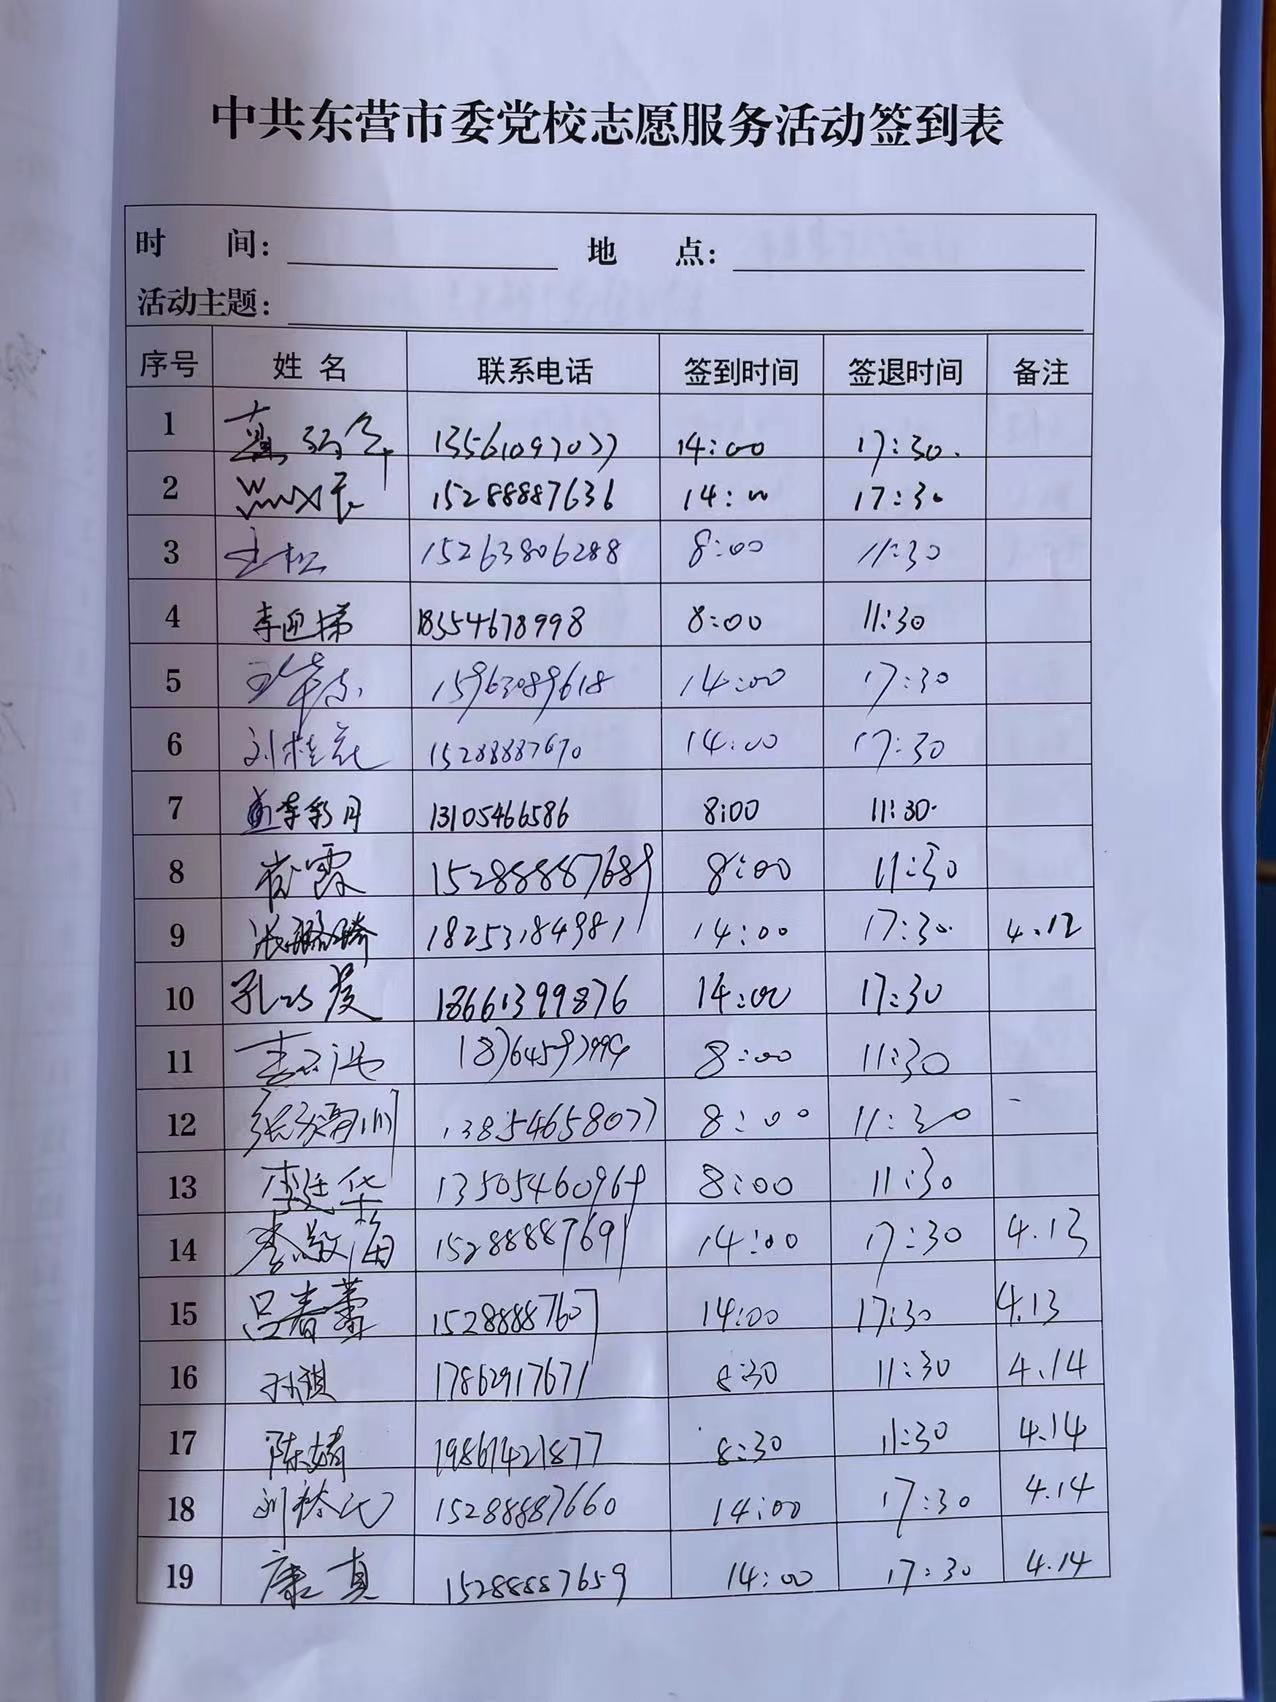 中共东营市委党校志愿服务活动签到表
时 间： 地 点：
活动主题：
序号 姓 名 联系电话 签到时间 签退时间 备注
1 13561097077 14:00 17:30.
2 15288887636 14:00 17:30
3 15263806288 8:00 11:30
4 李迎梯 18554678998 8:00 11:30
5 15963089618 14:00 17:30
6 刘桂花 15288887670 14:00 17:30
7 李彩月 13105466586 8:00 11:30.
8 崔霞 15288887689 8:00 11:30
9 18253184981 14:00 17:30. 4.12
10 18661399876 14:00 17:30
11 8:00 11:30
12 13854658077 8:00 11:30
13 李廷华 13505460969 8:00 11:30
14 李敬海 15288887691 14:00 17:30 4.13
15 吕春蕾 15288887607 14:00 17:30 4.13
16 孙祺 17862917671 8:30 11:30 4.14
17 陈婧 19861421877 8:30 11:30 4.14
18 15288887660 14:00 17:30 4.14
19 康真 15288887659 14:00 17:30 4.14